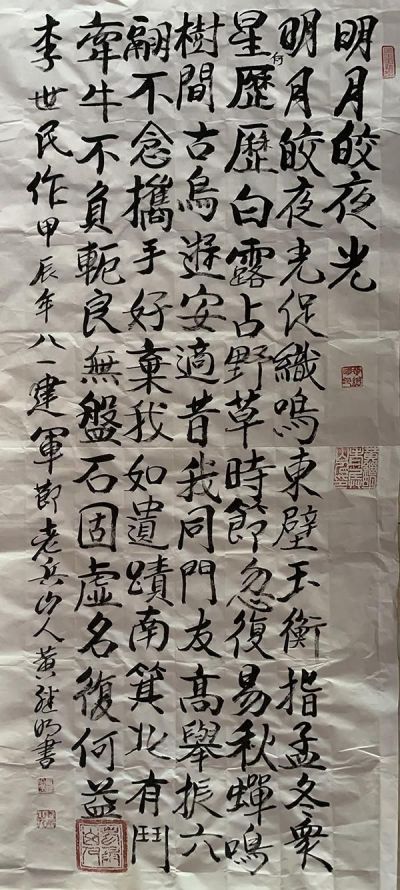 明月皎夜光
明月皎夜光促織鳴東壁玉衡指孟冬衆
星何歷歷白露占野草時節忽復易秋蟬鳴
樹間古鳥逝安適昔我同門友高舉振六
翮不念攜手好棄我如遺蹟南箕北有鬥
牽牛不負軛良無盤石固虛名復何益
李世民作甲辰年八一建軍節老兵山人黄继明書